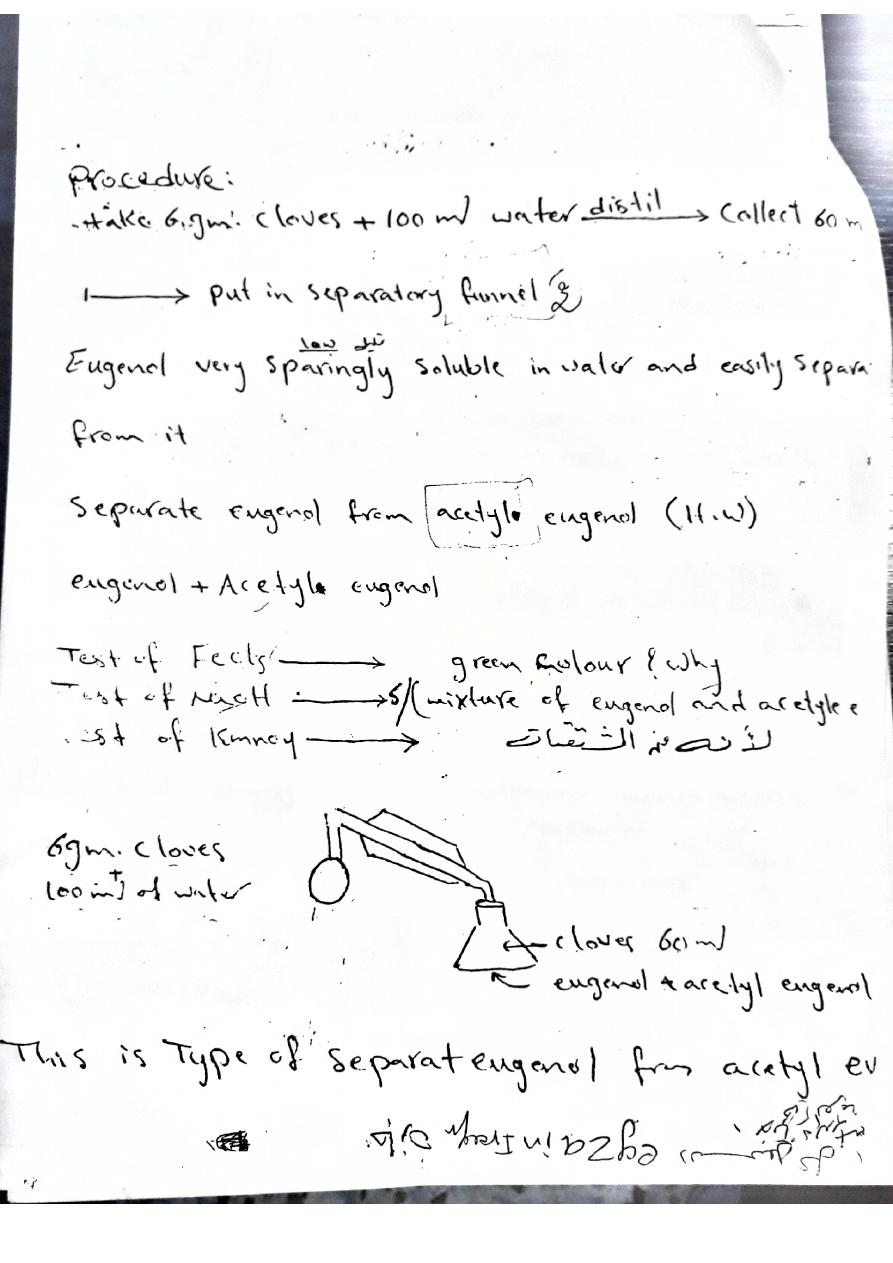 Procedure:
take 6.gm. cloves + 100 ml water distil → Collect 60 m
→ put in separatory funnel
low
Eugenol very sparingly soluble in water and easily separa
from it
Separate eugenol from acetyl eugenol (H.W)
eugenol + Acetyl eugenol
Test of Fecl3 → green colour ? why
Test of NaoH → (mixture of eugenol and acetyl e
of Kmno4 → لأنه من
6gm. cloves
+
100 ml of water
cloves 60 ml
eugenol + acetyl eugenol
This is Type of separat eugenol from acetyl eu